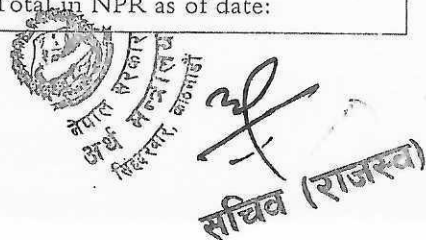 Total in NPR as of date:
नेपाल सरकार
अर्थ मन्त्रालय
सिंहदरवार, काठमाडौं
सचिव (राजस्व)